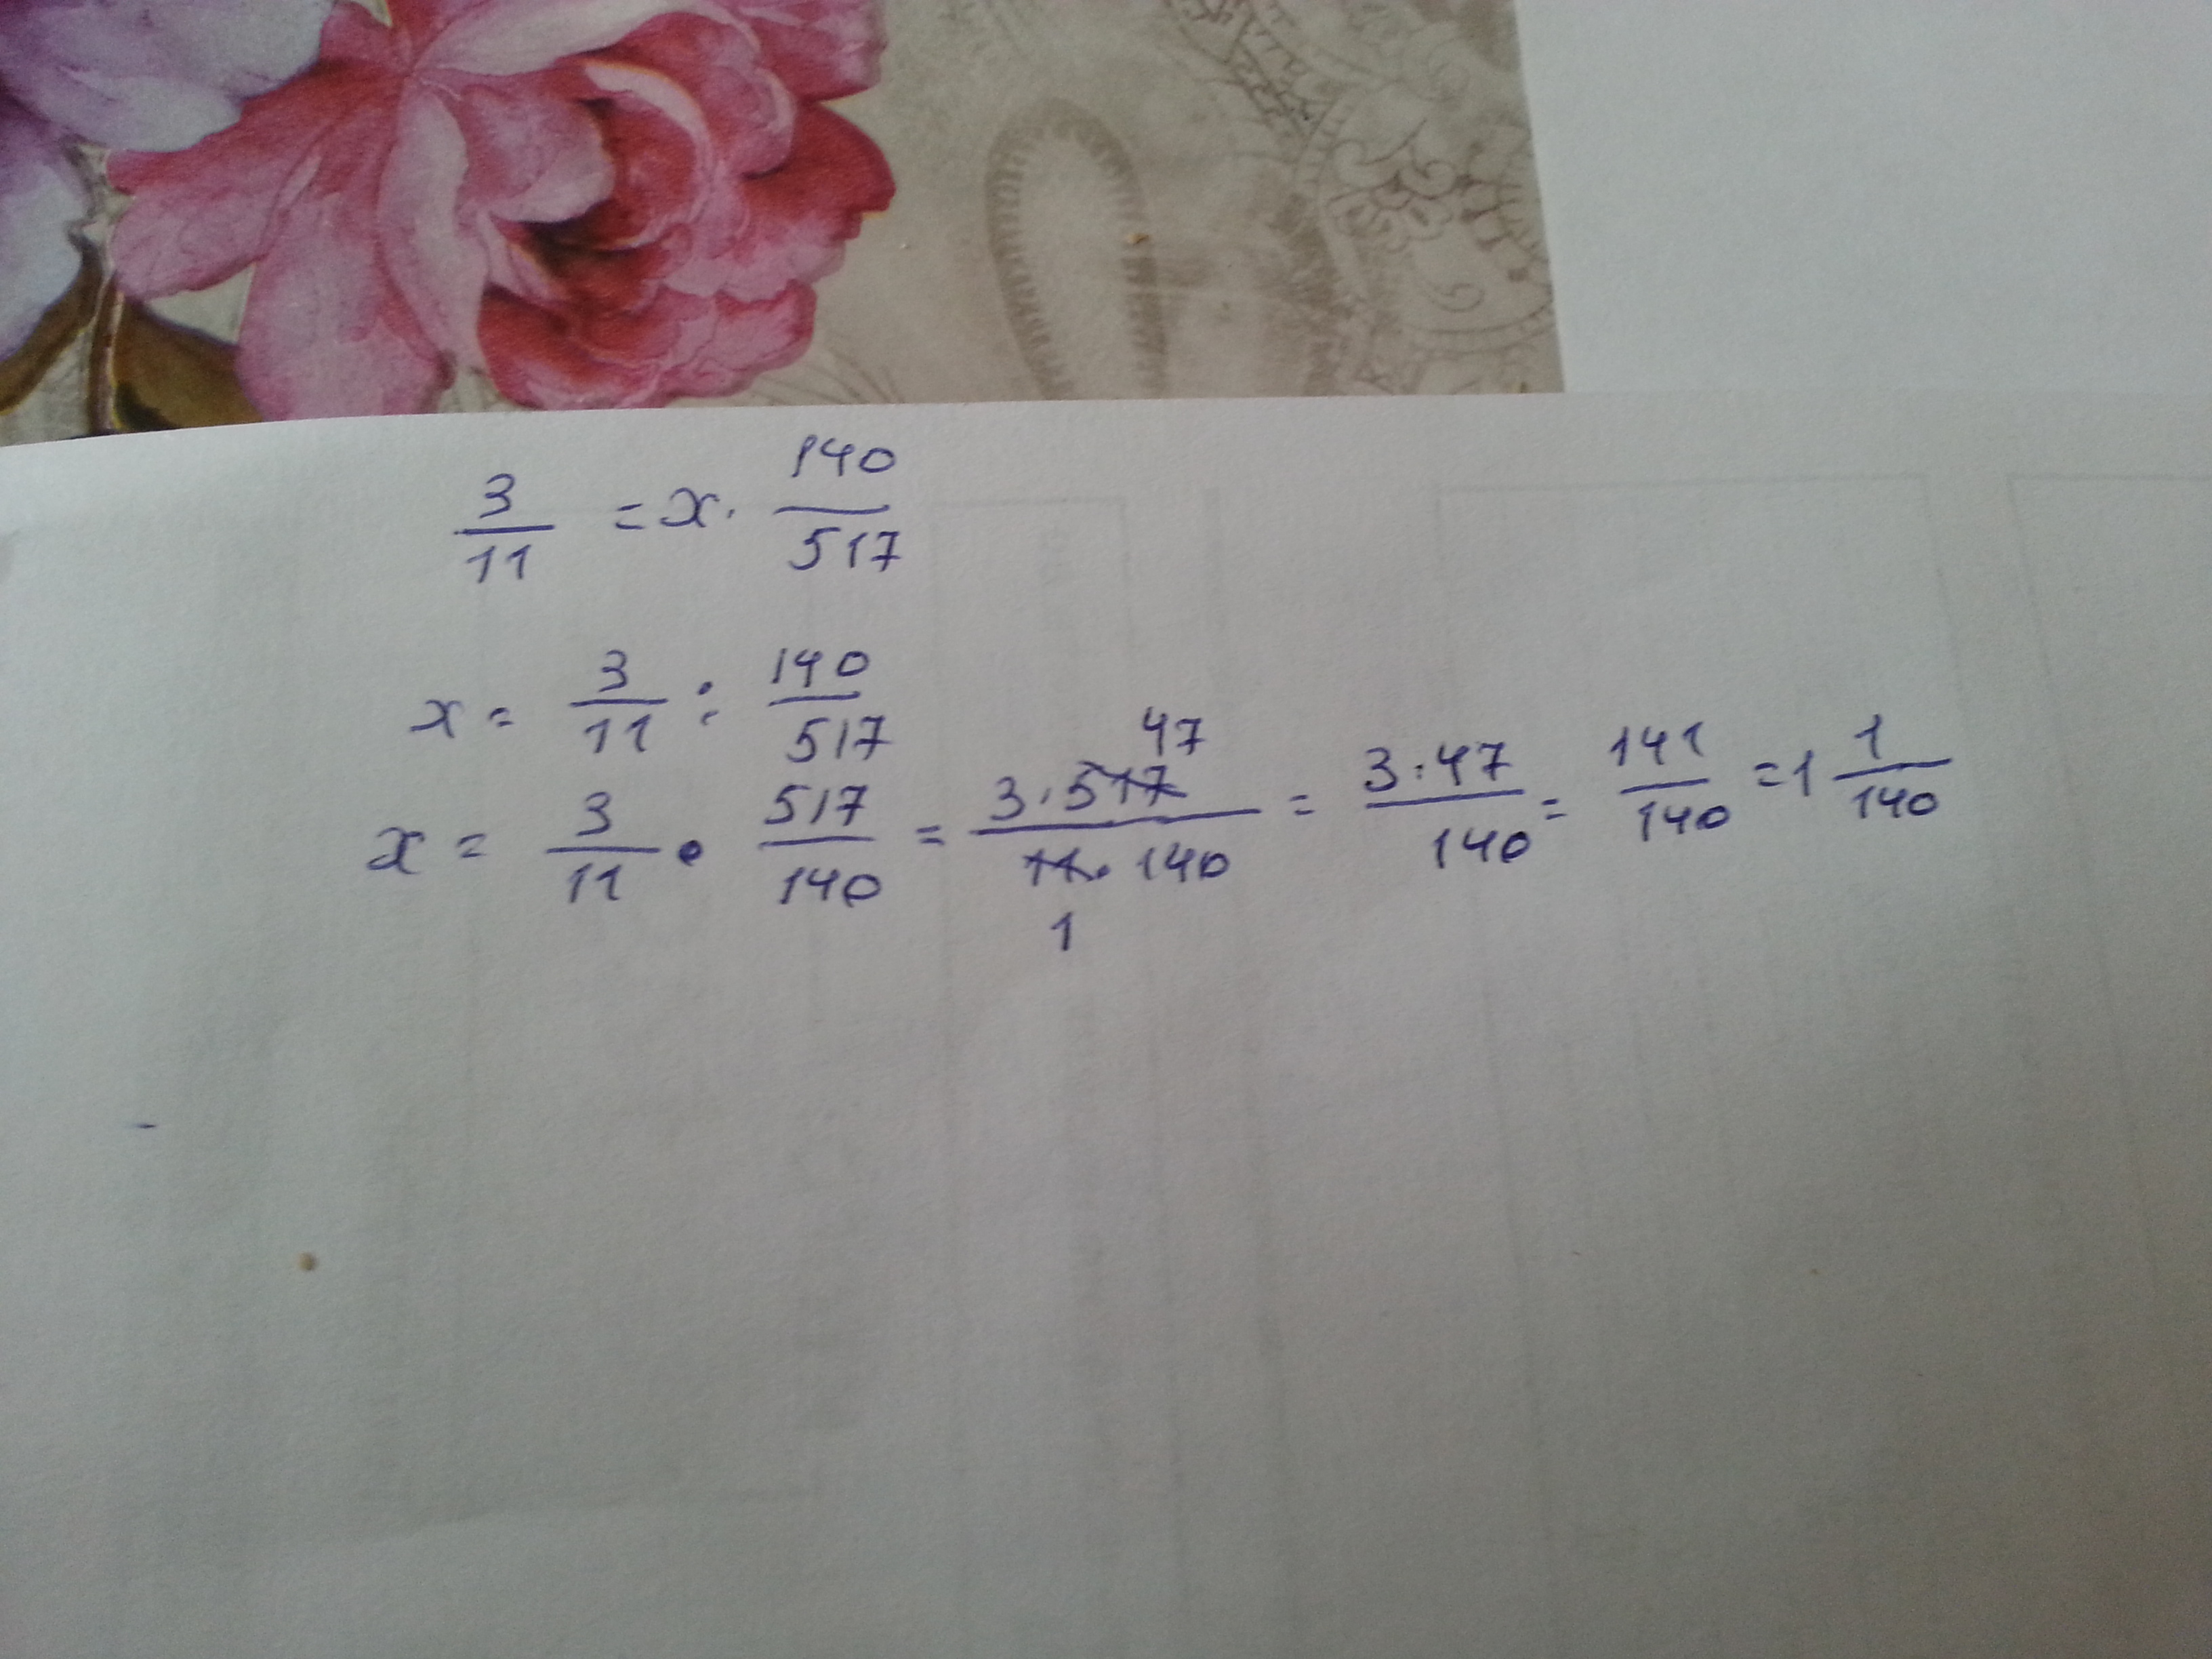 3/11 = x · 140/517
x = 3/11 : 140/517
x = 3/11 · 517/140 = 3 · 517 47 / 11 · 140 1 = 3 · 47/140 = 141/140 = 1 1/140